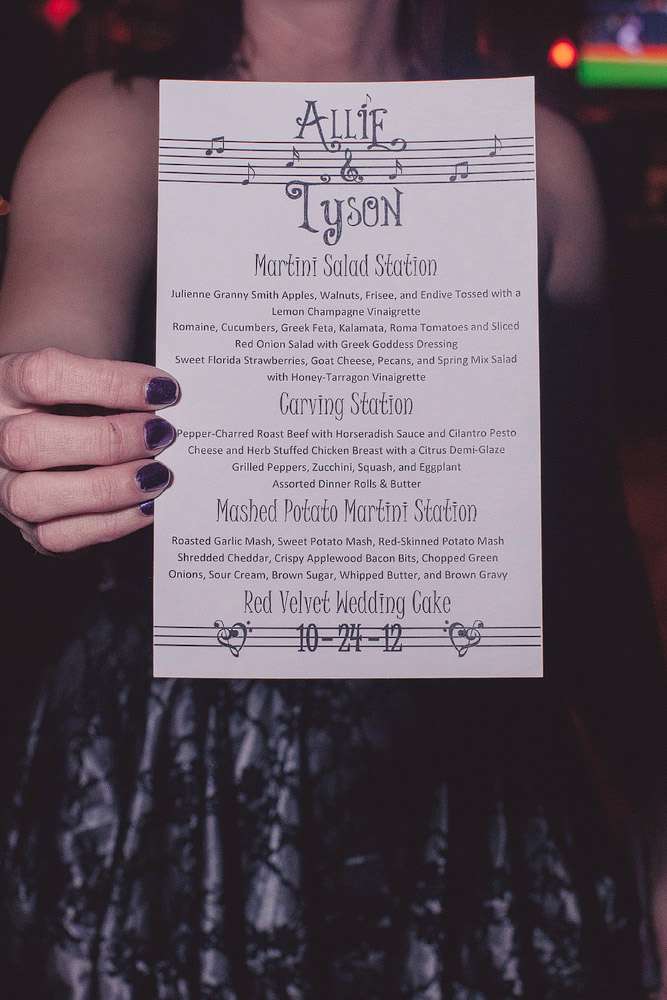 Allie
Tyson
Martini Salad Station
Julienne Granny Smith Apples, Walnuts, Frisee, and Endive Tossed with a
Lemon Champagne Vinaigrette
Romaine, Cucumbers, Greek Feta, Kalamata, Roma Tomatoes and Sliced
Red Onion Salad with Greek Goddess Dressing
Sweet Florida Strawberries, Goat Cheese, Pecans, and Spring Mix Salad
with Honey-Tarragon Vinaigrette
Carving Station
Pepper-Charred Roast Beef with Horseradish Sauce and Cilantro Pesto
Cheese and Herb Stuffed Chicken Breast with a Citrus Demi-Glaze
Grilled Peppers, Zucchini, Squash, and Eggplant
Assorted Dinner Rolls & Butter
Mashed Potato Martini Station
Roasted Garlic Mash, Sweet Potato Mash, Red-Skinned Potato Mash
Shredded Cheddar, Crispy Applewood Bacon Bits, Chopped Green
Onions, Sour Cream, Brown Sugar, Whipped Butter, and Brown Gravy
Red Velvet Wedding Cake
10-24-12